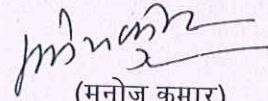 (मनोज कुमार)